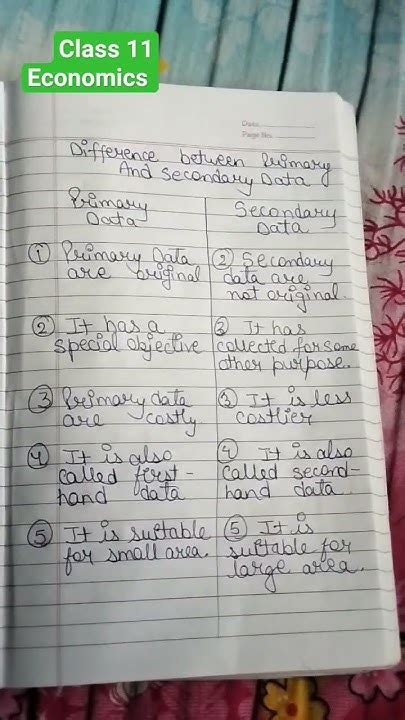 Class 11
Economics
Date
Page No.
Difference between Primary
And Secondary Data
Primary
Data
Secondary
Data
① Primary Data
are original
② Secondary
data are
not original.
② It has a
special objective
② It has
collected for some
other purpose.
③ Primary data
are costly
③ It is less
costlier
④ It is also
called first-
hand data
④ It is also
called second-
hand data.
⑤ It is suitable
for small area.
⑤ It is
suitable for
large area.